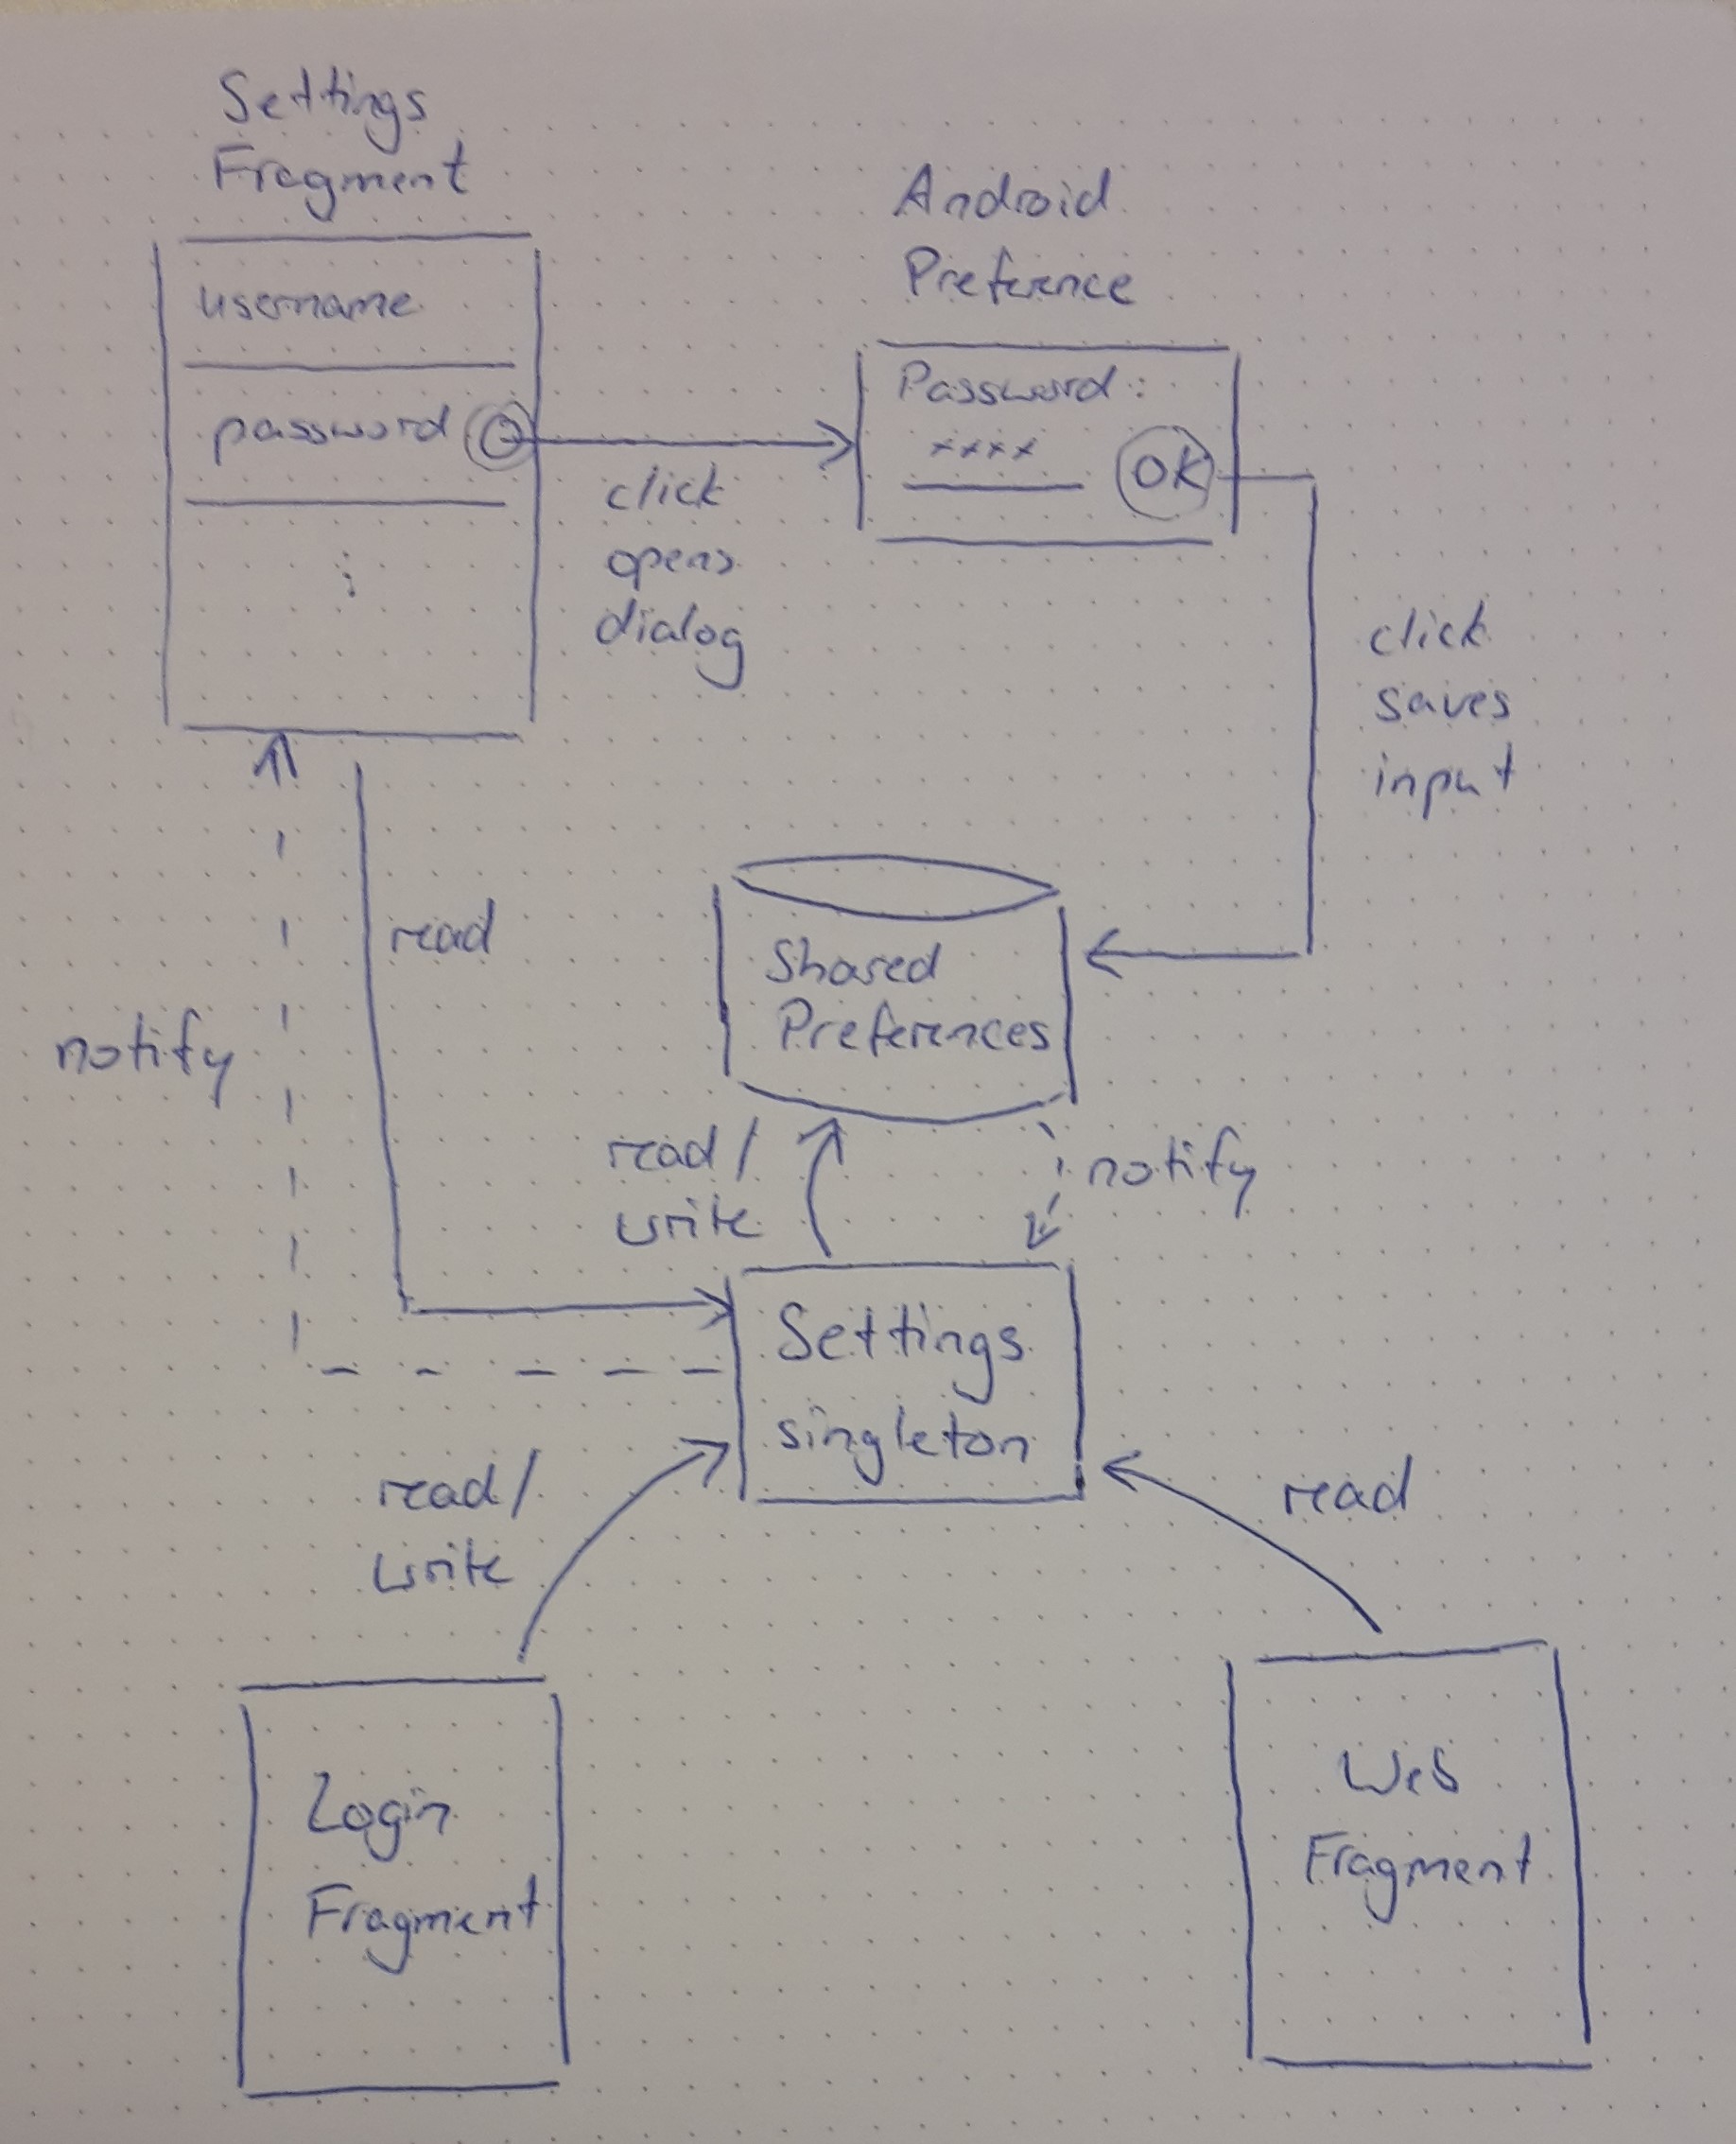 Settings
Fragment
username
password
:
Android
Preference
Password:
xxxx
OK
click
opens
dialog
click
saves
input
read
notify
Shared
Preferences
read/
write
notify
Settings
singleton
read/
write
read
Login
Fragment
Web
Fragment